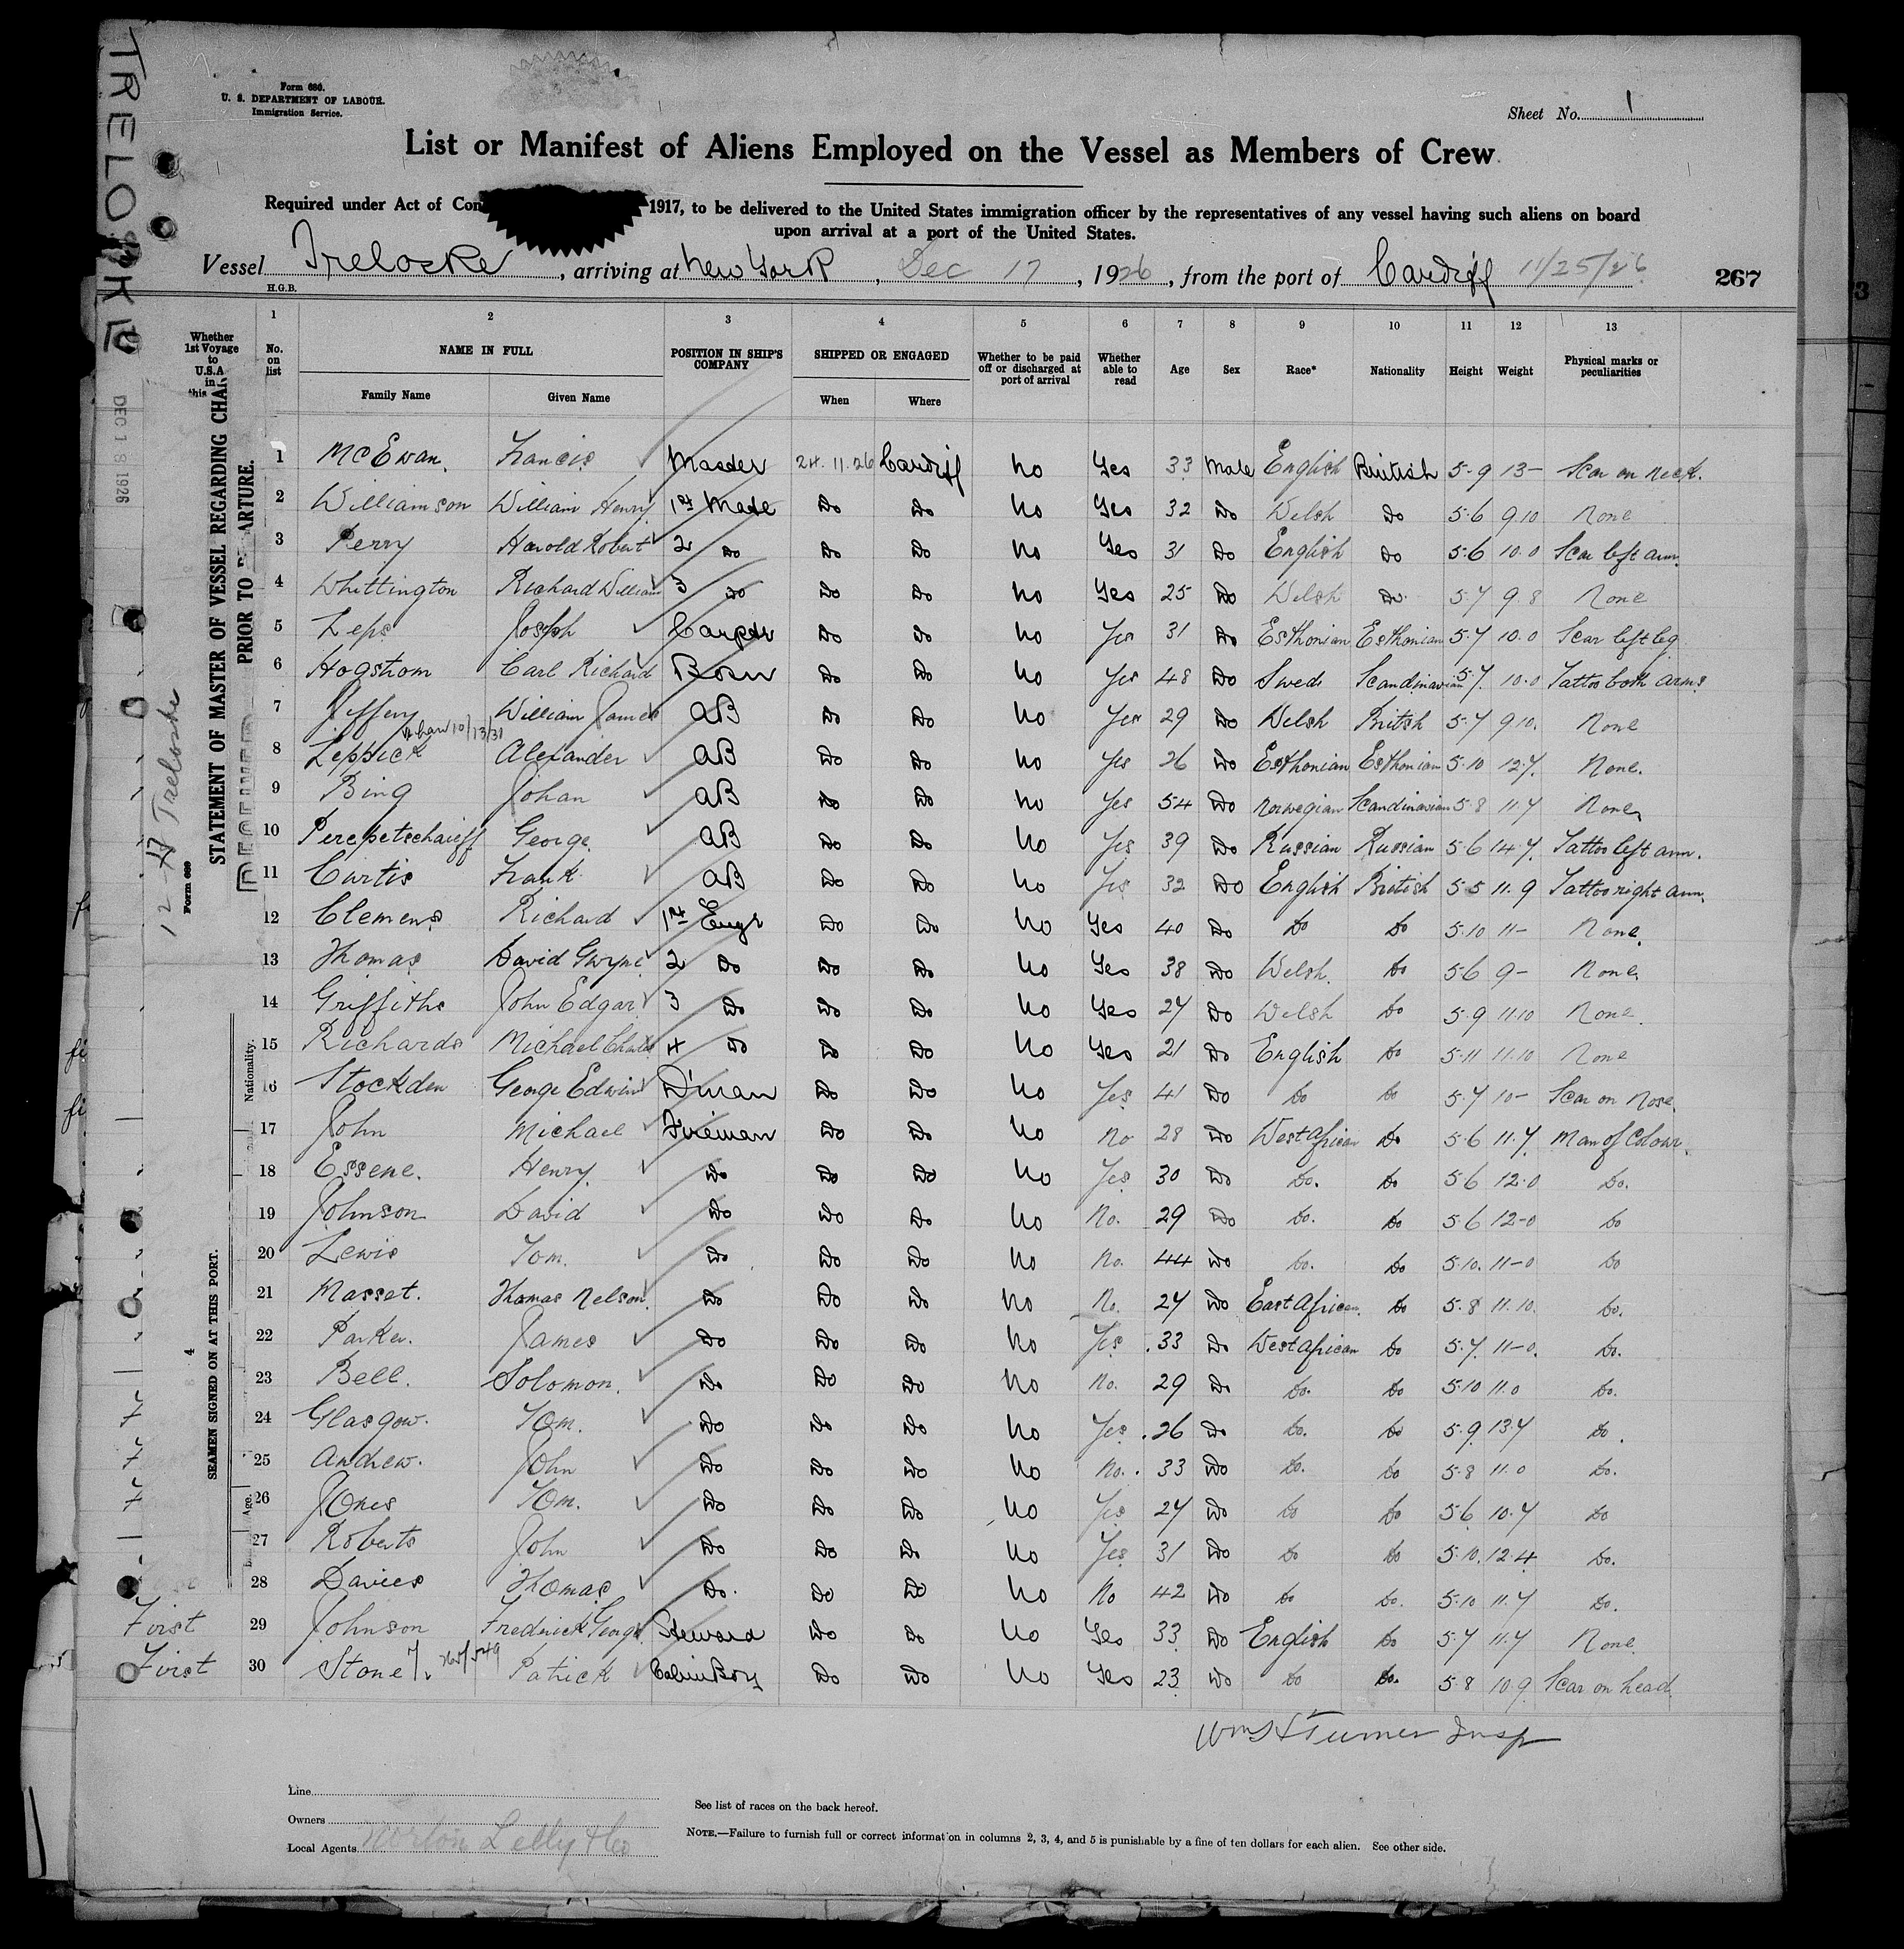 TRELOSKE
Form 680.
U. S. DEPARTMENT OF LABOUR.
Immigration Service.
Sheet No. 1
List or Manifest of Aliens Employed on the Vessel as Members of Crew
Required under Act of Con 1917, to be delivered to the United States immigration officer by the representatives of any vessel having such aliens on board
upon arrival at a port of the United States.
Vessel Treloske, arriving at New York, Dec 17, 1926, from the port of Cardiff 11/25/26
267
H.G.B.
DEC 18 1926
12-17 Treloske
Form 689
STATEMENT OF MASTER OF VESSEL REGARDING CHAN
PRIOR TO DEPARTURE.
SEAMEN SIGNED ON AT THIS PORT.
Nationality.
Age.
Whether 1st Voyage to U.S.A in this
1 2 3 4 5 6 7 8 9 10 11 12 13
No. on list | NAME IN FULL | POSITION IN SHIP'S COMPANY | SHIPPED OR ENGAGED | Whether to be paid off or discharged at port of arrival | Whether able to read | Age | Sex | Race* | Nationality | Height | Weight | Physical marks or peculiarities
Family Name | Given Name | When | Where
1 McEwan. Francis Master 24.11.26 Cardiff No Yes 33 Male English British 5-9 13- Scar on neck.
2 Williamson William Henry 1st Mate Do Do No Yes 32 Do Welsh Do 5.6 9.10 None
3 Perry Harold Robert 2 Do Do Do No Yes 31 Do English Do 5.6 10.0 Scar left arm.
4 Whittington Richard William 3 Do Do Do No Yes 25 Do Welsh Do 5.7 9.8 None
5 Leps Joseph Carptr Do Do No Yes 31 Do Esthonian Esthonian 5.7 10.0 Scar left leg
6 Hogstrom Carl Richard Bosn Do Do No Yes 48 Do Swede Scandinavian 5.7. 10.0 Tattoo both arms
7 Jeffery William James AB Do Do No Yes 29 Do Welsh British 5.7 9.10. None
10/13/31
8 Leppick Alexander AB Do Do No Yes 26 Do Esthonian Esthonian 5.10 12.7. None.
9 Bing Johan AB Do Do No Yes 54 Do Norwegian Scandinavian 5.8 11.7 None
10 Perepetschaieff George. AB Do Do No Yes 39 Do Russian Russian 5.6 14.7. Tattoo left arm.
11 Curtis Frank AB Do Do No Yes 32 Do English British 5.5 11.9 Tattoo right arm.
12 Clemens Richard 1st Engr Do Do No Yes 40 Do Do Do 5.10 11- None.
13 Thomas David Gwyne 2 Do Do Do No Yes 38 Do Welsh. Do 5.6 9- None.
14 Griffiths John Edgar 3 Do Do Do No Yes 27 Do Welsh Do 5.9 11.10 None.
15 Richards Michael Charles 4 Do Do Do No Yes 21 Do English Do 5.11 11.10 None
16 Stockden George Edwin D'man Do Do No Yes 41 Do Do Do 5.7 10- Scar on Nose.
17 John Michael Fireman Do Do No No 28 Do West African Do 5.6 11.7. Man of Colour.
18 Essene. Henry. Do Do Do No Yes 30 Do Do. Do 5.6 12.0 Do.
19 Johnson David Do Do Do No No. 29 Do Do. Do 5.6 12-0 Do
20 Lewis Tom. Do Do Do No No. 44 Do Do. Do 5.10. 11-0 Do
21 Masset. Thomas Nelson. Do Do Do No No. 27 Do East African. Do 5.8 11.10. Do.
22 Parker. James Do Do Do No Yes. 33 Do West African Do 5.7. 11-0. Do.
23 Bell. Solomon. Do Do Do No No. 29 Do Do. Do 5.10 11.0 Do.
24 Glasgow. Tom. Do Do Do No Yes. 26 Do Do. Do 5.9 13.7 Do.
25 Andrew. John Do Do Do No No. 33 Do Do. Do 5.8 11.0 Do.
26 Jones Tom. Do Do Do No Yes 27 Do Do Do 5.6 10.7 Do
27 Roberts John Do Do Do No Yes 31 Do Do Do 5.10. 12.4 Do.
28 Davies Thomas Do. Do Do No No 42 Do Do Do. 5.10 11.7 Do.
First 29 Johnson Frederick George Steward Do Do No Yes 33 Do English Do 5.7 11.7 None.
First 30 Stone Patrick Cabin Boy Do Do No Yes 23 Do Do Do. 5.8 10.9 Scar on head
Wm S Turner Insp
Line
Owners
Local Agents Norton Lilly & Co
See list of races on the back hereof.
NOTE.—Failure to furnish full or correct information in columns 2, 3, 4, and 5 is punishable by a fine of ten dollars for each alien. See other side.